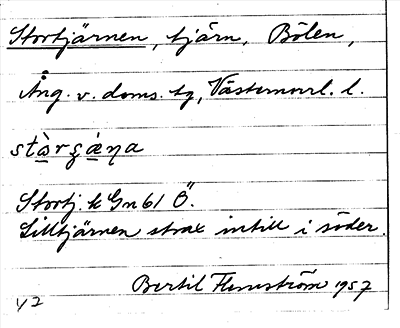 Stortjärnen, tjärn, Bölen,
Ång. v. doms. tg, Västernorrl. l.
stàrʒǽŋa
Stortj. k Gn 61 Ö.
Lilltjärnen strax intill i söder.
Bertil Flemström 1957
V2